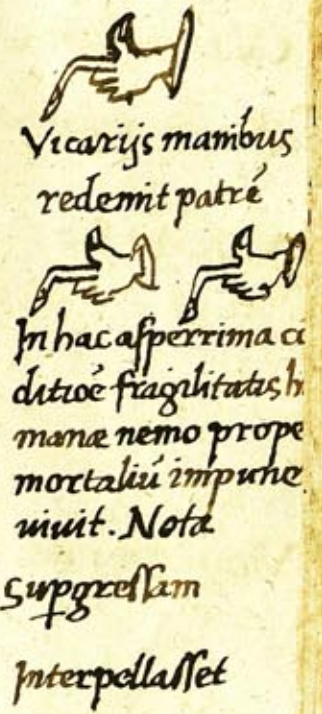 Vicarijs manibus
redemit patrē
In hac asperrima cō
ditiōe fragilitatis h
manæ nemo prope
mortaliū impune
uiuit. Nota
Supgressam
Interpellasset